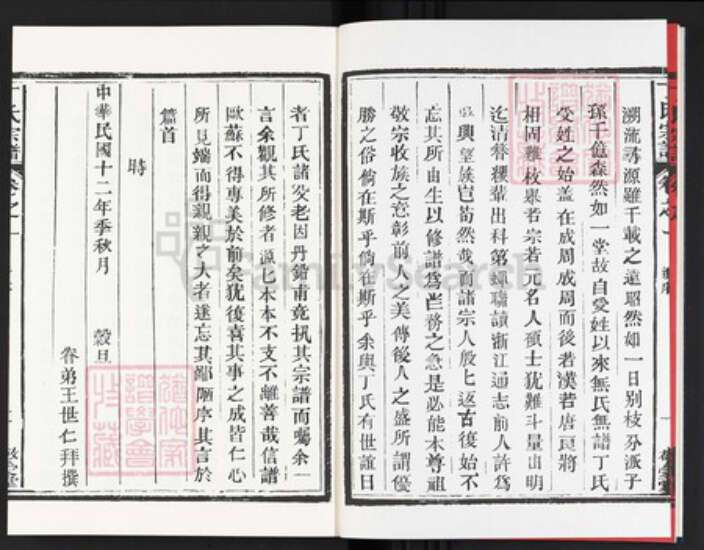 溯流尋源雖千載之遠昭然如一日別枝分派子
孫千億森然如一堂故自受姓以來無氏無譜丁氏
受姓之始蓋在成周成周而後若漢若唐良將
相固難枚舉若宗若元名人碩士猶難斗量
迄清簪纓輩出科第蟬聯讀浙江通志前人許爲
興望族豈茍然哉而諸宗人殷七返古復始不
忘其所由生以修譜爲世務之急是必能本尊祖
敬宗收族之意彰前人之美傳後人之盛所謂優
勝之俗倘在斯乎倘在斯乎余與丁氏有世誼日
者丁氏諸父老因丹錯甫竟執其宗譜而囑余一
言余觀其所修者源七本本不支不離善哉信譜
歐蘇不得專美於前矣猶後喜其事之成皆仁心
所見端而得親親之大者遂忘其鄙陋序其言於
篇首
時
中華民國十二年季秋月 穀旦
眷弟王世仁拜撰
氏宗譜
卷之一
FamilySearch